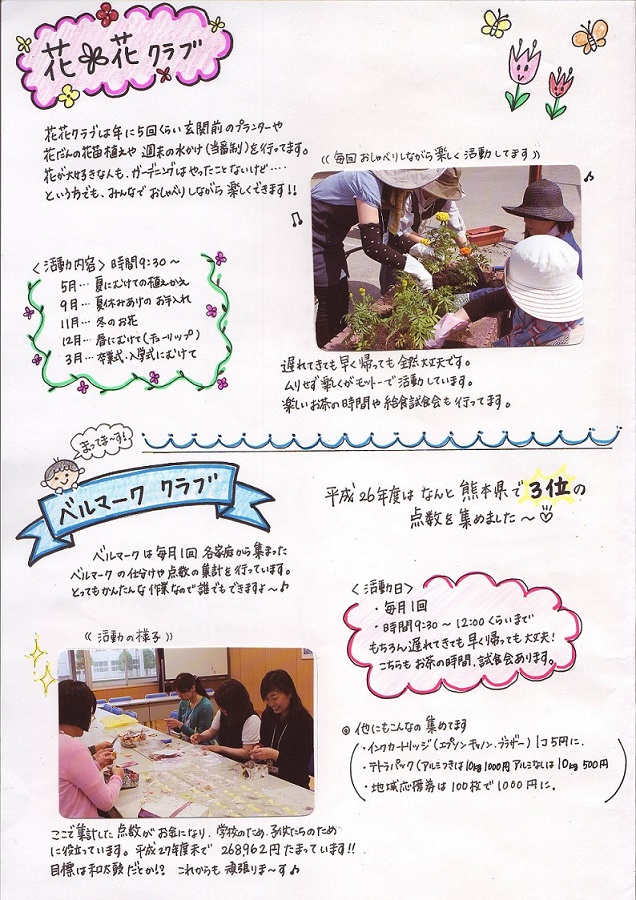 花花クラブ
花花クラブは年に5回くらい玄関前のプランターや
花だんの花苗植えや 週末の水かけ(当番制)を行ってます。
花が大好きな人も、ガーデニングはやったことないけど‥‥
という方でも、みんなで おしゃべりしながら 楽しくできます!!
《毎回おしゃべりしながら楽しく活動してます》
〈活動内容〉時間9:30〜
5月… 夏にむけての植えかえ
9月… 夏休みあけのお手入れ
11月… 冬のお花
12月… 春にむけて(チューリップ)
3月… 卒業式、入学式にむけて
遅れてきても早く帰っても全然大丈夫です。
ムリせず楽しくがモットーで活動しています。
楽しいお茶の時間や給食試食会も行ってます。
まってま〜す!
ベルマーク クラブ
ベルマークは毎月1回 各家庭から集まった
ベルマークの仕分けや点数の集計を行っています。
とってもかんたんな作業なので誰でもできますよ〜♪
平成26年度は なんと 熊本県で3位の
点数を集めました〜♡
〈活動日〉
・毎月1回
・時間9:30〜12:00くらいまで
もちろん遅れてきても早く帰っても大丈夫!
こちらもお茶の時間、試食会あります。
《活動の様子》
◎ 他にもこんなの集めてます
・インクカートリッジ(エプソン キャノン ブラザー) 1コ5円に.
・テトラパック(アルミつきは10kg1000円アルミなしは10kg500円
・地域応援券は100枚で1000円に.
ここで集計した点数がお金になり、学校のため、子供たちのため
に役立っています。平成27年度末で 268962円たまっています!!
目標は和太鼓だとか!? これからも頑張りま〜す♪